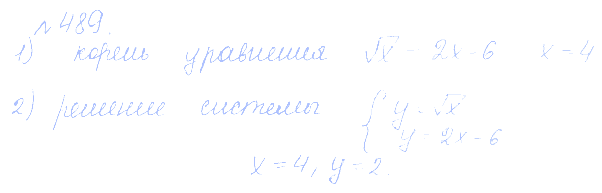 № 489.
1) корень уравнения √x - 2x - 6 x = 4
2) решение системы { y - √x
y - 2x - 6
x = 4, y = 2.